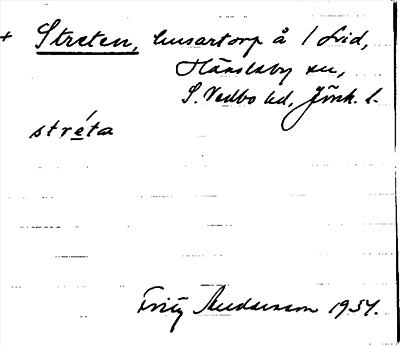 + Streten, husartorp å 1 Lid,
Hässleby sn,
S. Vedbo hd, Jönk. l.
stréta
Fritz Andersson 1934.